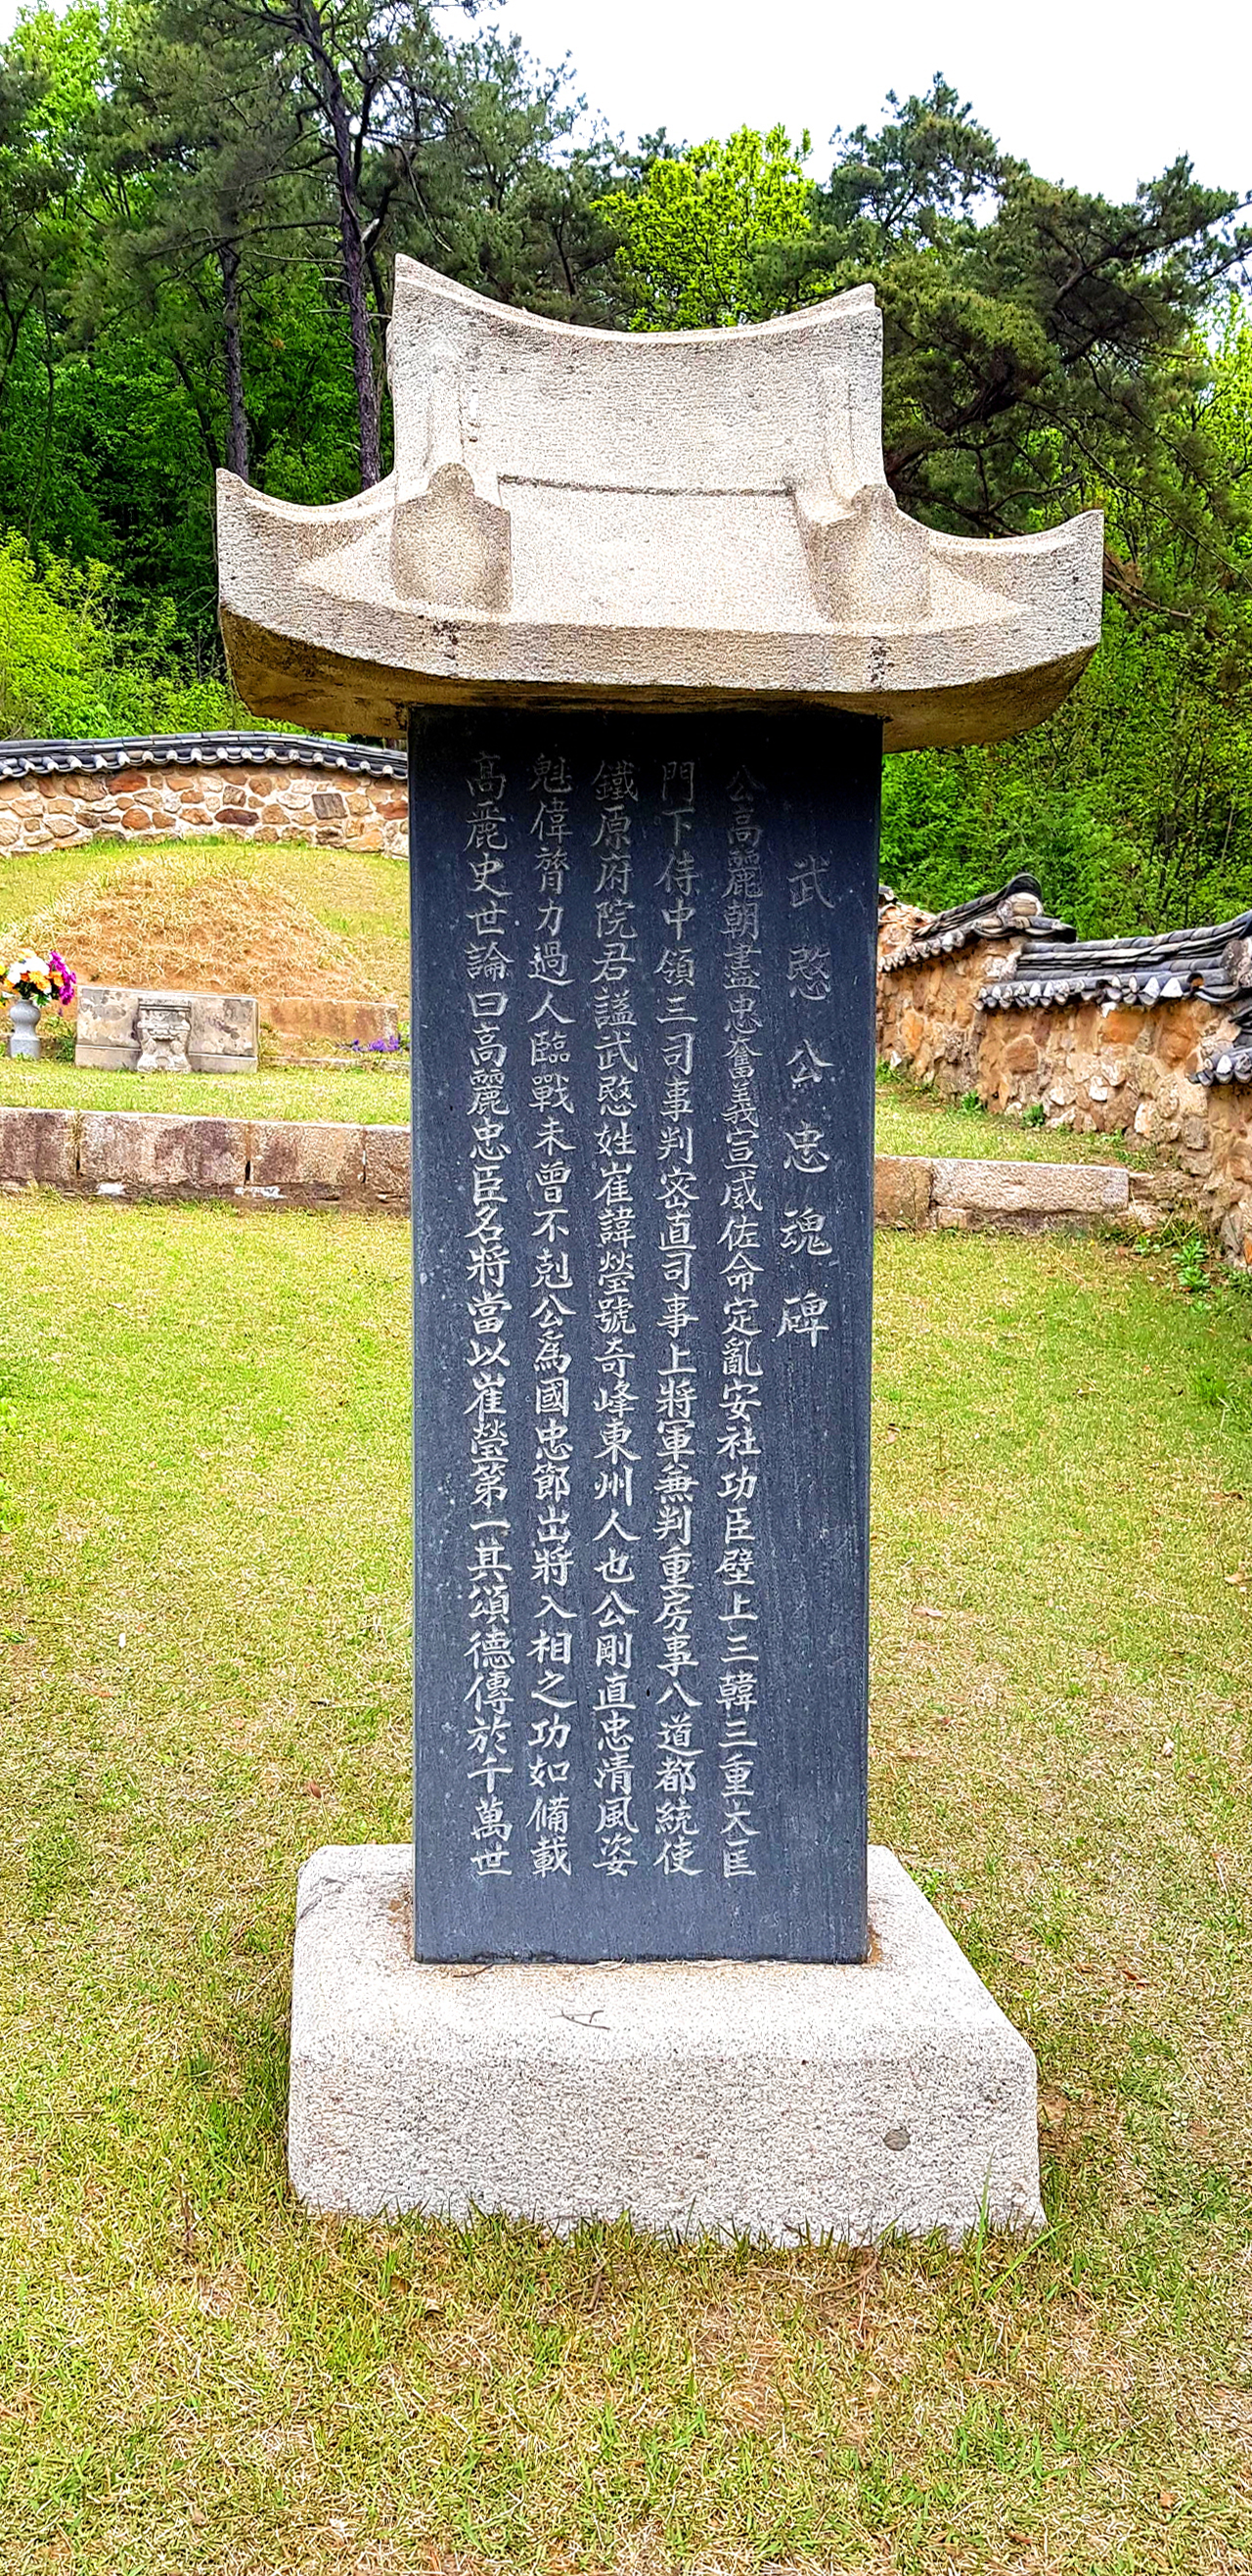 武愍公忠魂碑
公高麗朝盡忠奮義宣威佐命定亂安社功臣壁上三韓三重大匡
門下侍中領三司事判密直司事上將軍兼判重房事八道都統使
鐵原府院君謚武愍姓崔諱瑩號奇峰東州人也公剛直忠清風姿
魁偉膂力過人臨戰未曾不剋公爲國忠節出將入相之功如備載
高麗史世論曰高麗忠臣名將當以崔瑩第一其頌德傳於千萬世